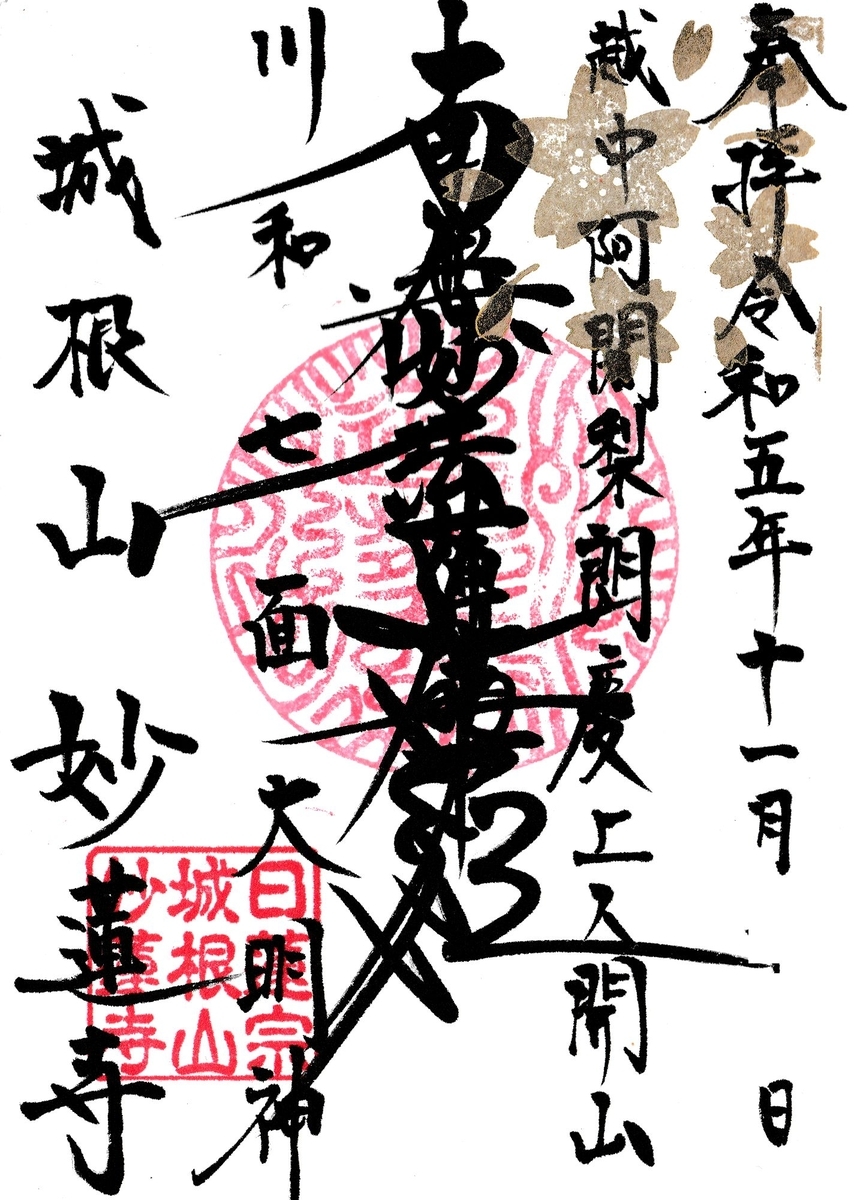 奉拝令和五年十一月 日
越中阿闍梨朗慶上人開山
南無妙法蓮華経
川和七面大明神
城根山妙蓮寺
日蓮宗
城根山
妙蓮寺